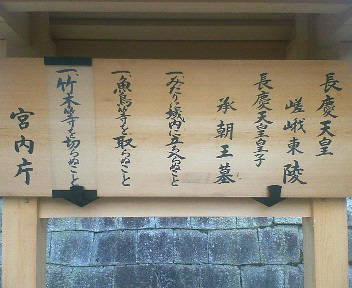 長慶天皇
嵯峨東陵
長慶天皇皇子
承朝王墓
一みだりに域内に立ち入らぬこと
一魚鳥等を取らぬこと
一竹木等を切らぬこと
宮内庁